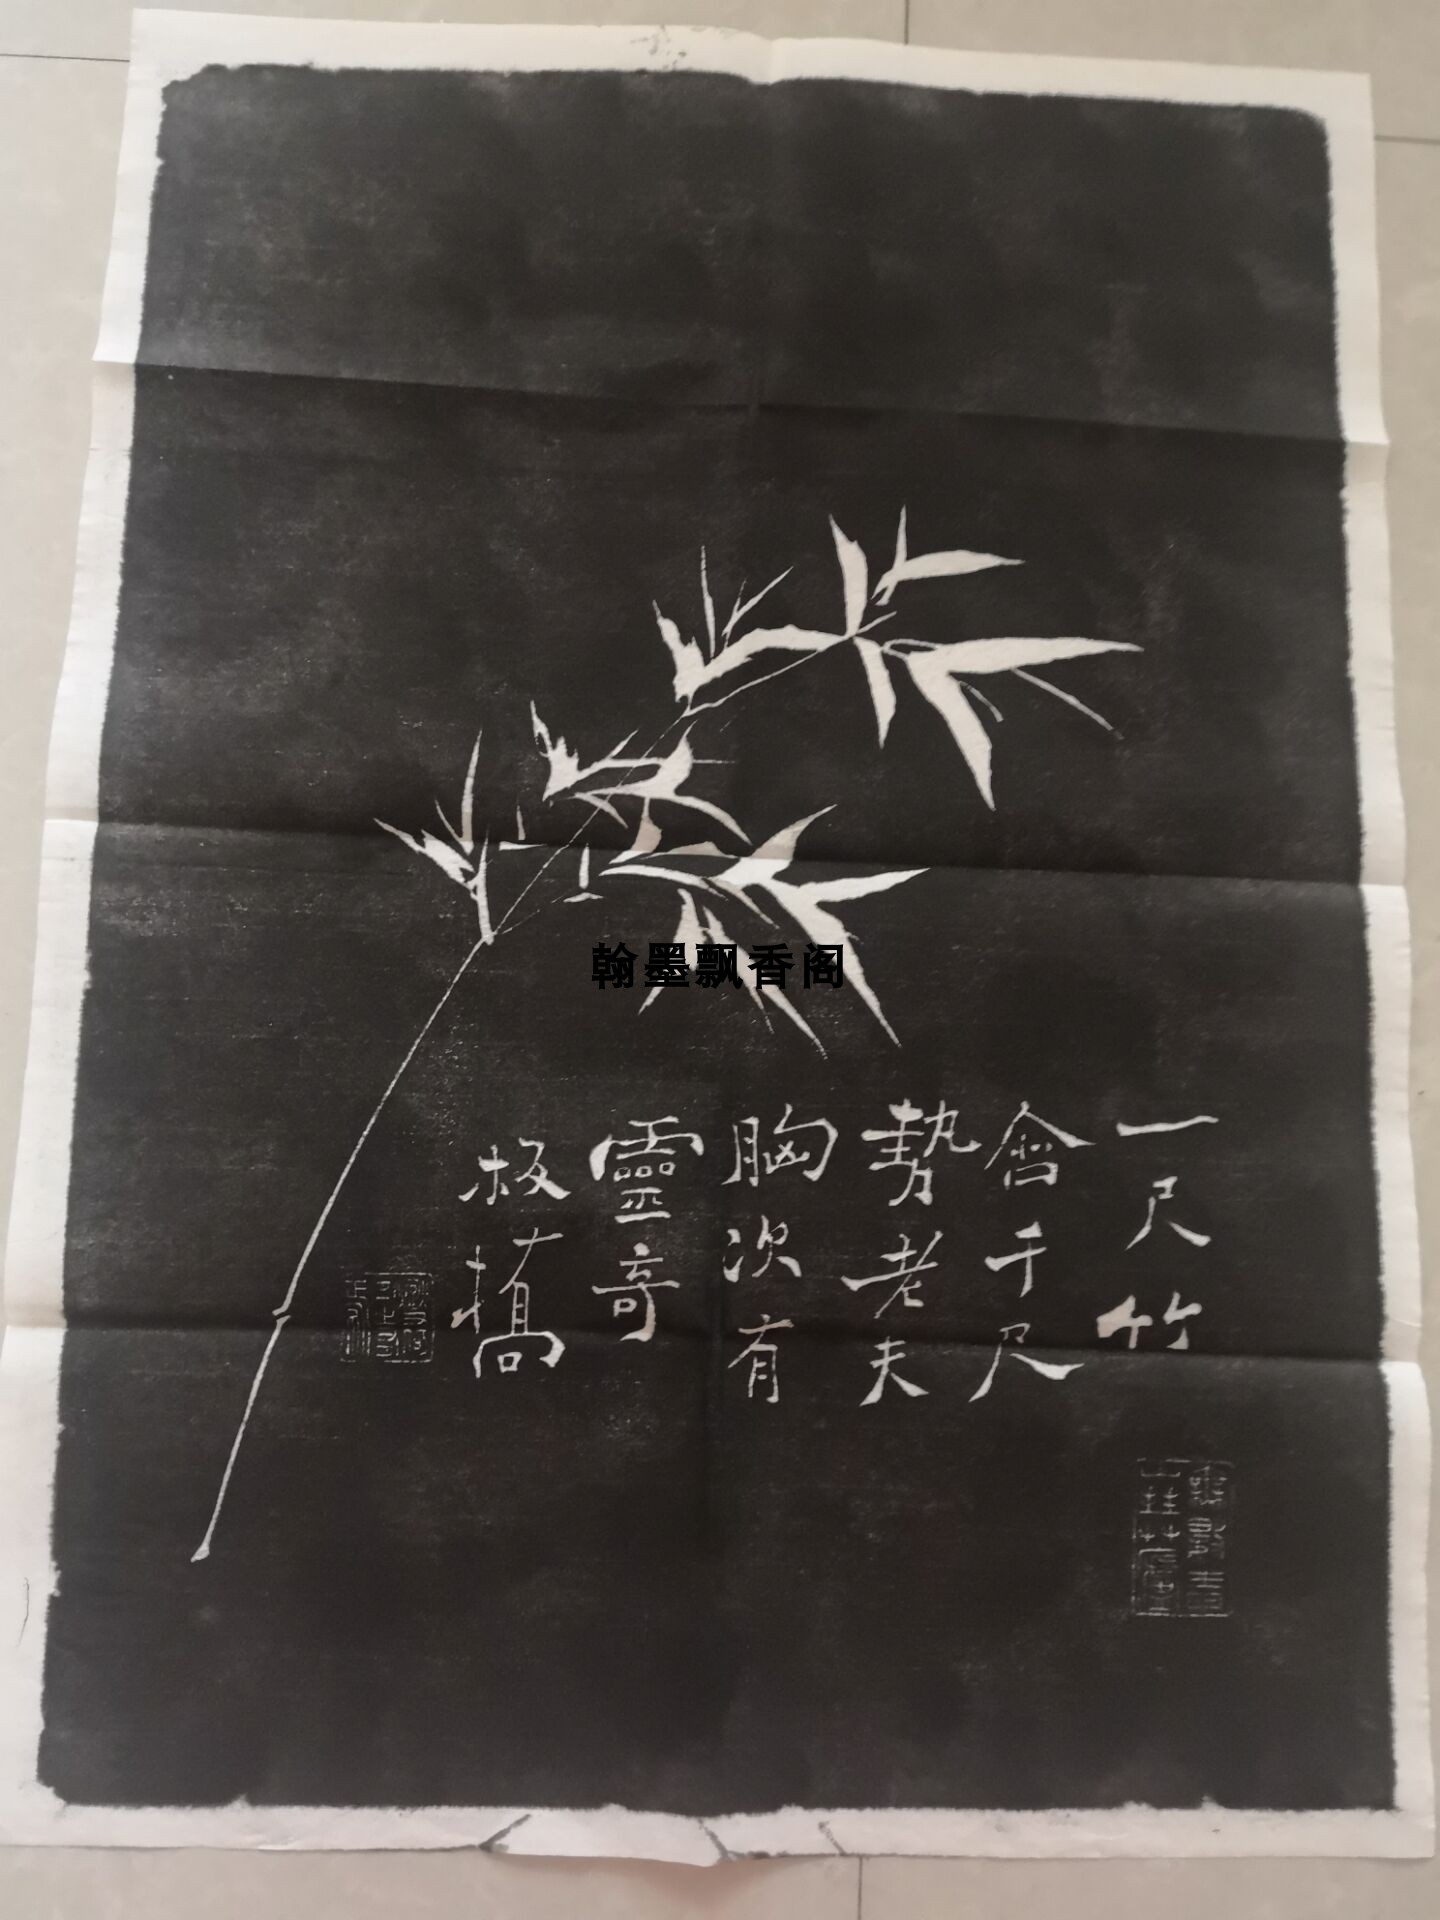 一尺竹
會千尺
勢老夫
胸次有
靈奇
板橋
翰墨飘香阁